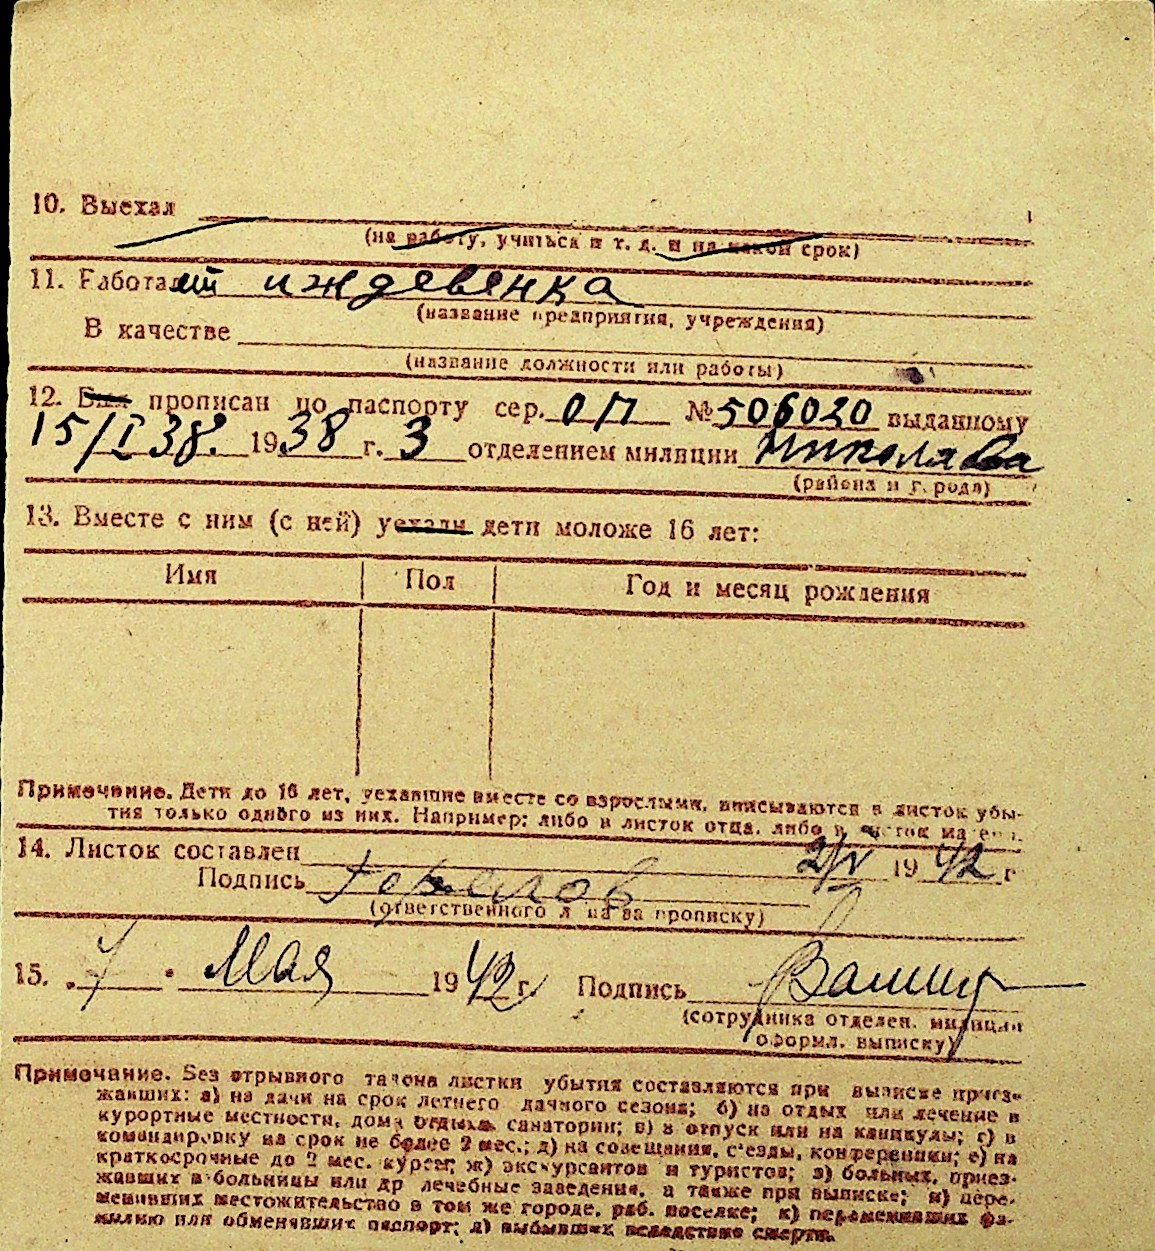 10. Выехал
(на работу, учиться и т. д. и на какой срок)
11. Работает иждевенка
(название предприятия, учреждения)
В качестве
(название должности или работы)
12. Был прописан по паспорту сер. ОП № 506020 выданному
15/I 38. 1938 г. 3 отделением милиции Николаева
(района и города)
13. Вместе с ним (с ней) уехали дети моложе 16 лет:
Имя Пол Год и месяц рождения
Примечание. Дети до 16 лет, уехавшие вместе со взрослыми, вписываются в листок убы-
тия только одного из них. Например: либо в листок отца, либо в листок матери.
14. Листок составлен 2/V 1942 г
Подпись
(ответственного лица за прописку)
15. 7 Мая 1942 г. Подпись
(сотрудника отделен. милиции
оформл. выписку)
Примечание. Без отрывного талона листки убытия составляются при выписке приез-
жавших: а) на дачи на срок летнего дачного сезона; б) на отдых или лечение в
курортные местности, дома отдыха, санатории; в) в отпуск или на каникулы; г) в
командировку на срок не более 2 мес.; д) на совещания, с'езды, конференции; е) на
краткосрочные до 2 мес. курсы; ж) экскурсантов и туристов; з) больных, приез-
жавших в больницы или др лечебные заведения, а также при выписке; и) пере-
менивших местожительство в том же городе, раб. поселке; к) переменивших фа-
милию или обменявших паспорт; л) выбывших вследствие смерти.